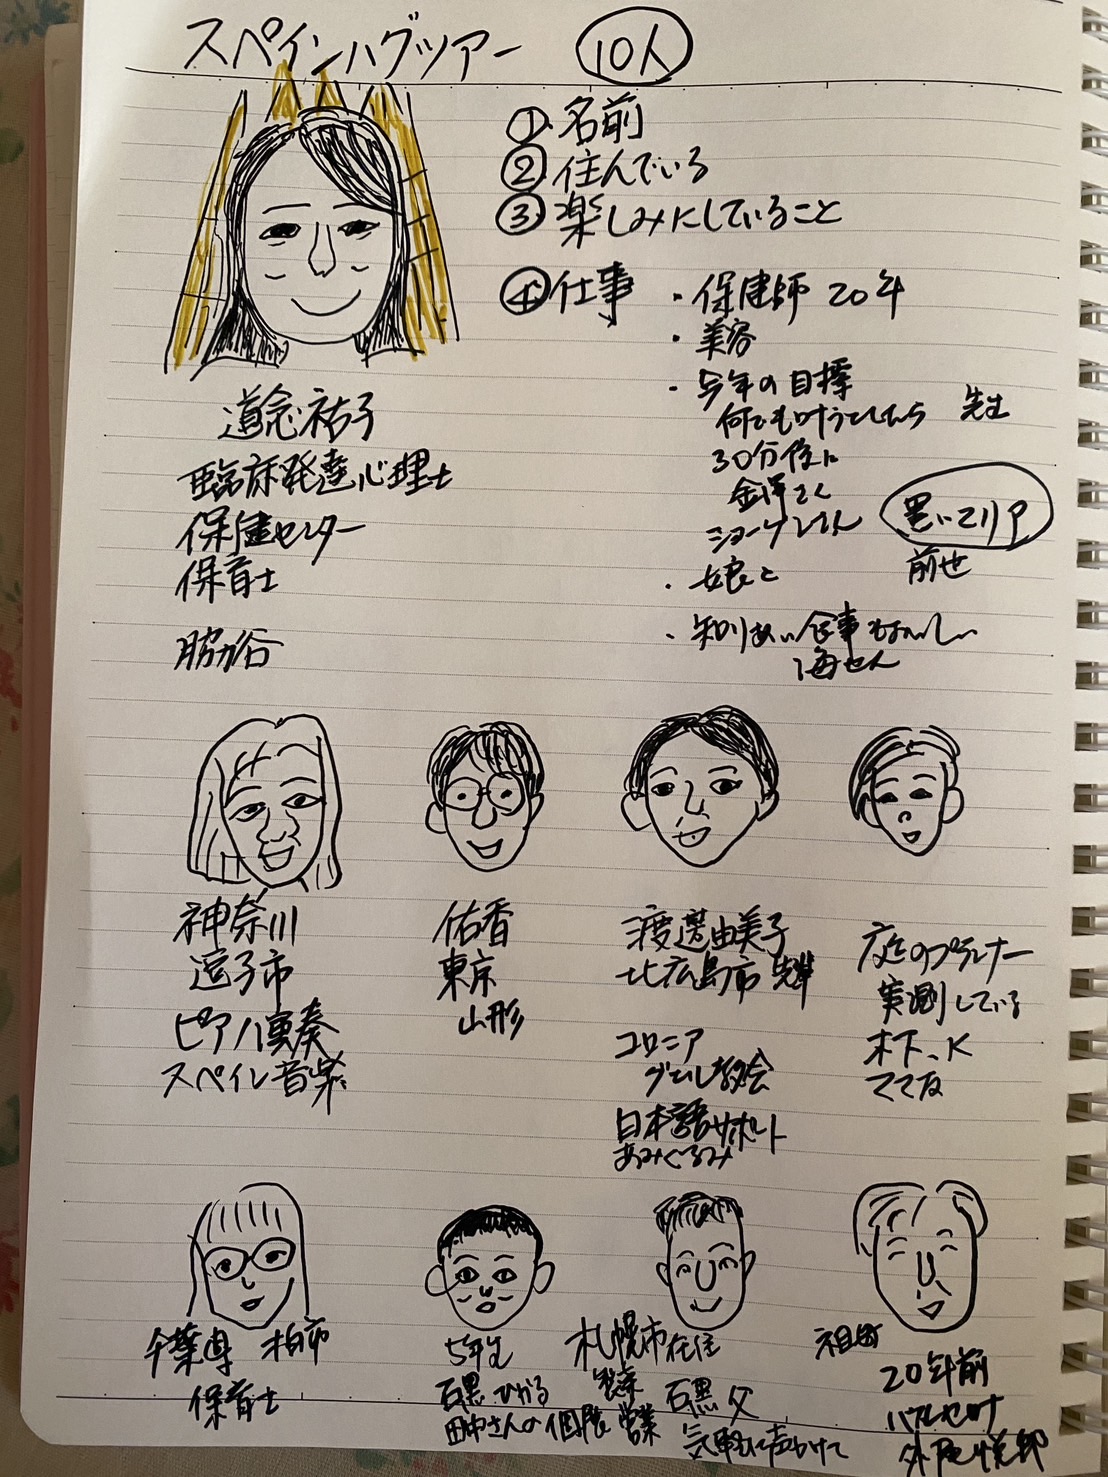 スペインハグツアー 10人
① 名前
② 住んでいる
③ 楽しみにしていること
④ 仕事 ・保健師 20年
・美容
・今年の目標
何でも叶うとしたら 先生
30分後に
金澤さん
置いてリア
前世
・娘と
・知りあい 食事もおいしい
道念祐子
臨床発達心理士
保健センター
保育士
脇谷
神奈川
逗子市
ピアノ演奏
スペイン音楽
佑香
東京
山形
渡邊由美子
北広島市
コロニア
グエル教会
日本語サポート
あみぐるみ
庭のプランナー
実測している
木下、K
ママ友
千葉県 柏市
保育士
5年生
石黒 ひかる
田中さんの個展
札幌市在住
営業
石黒 父
気軽に声かけて
20年前
バルセロナ
外尾悦郎